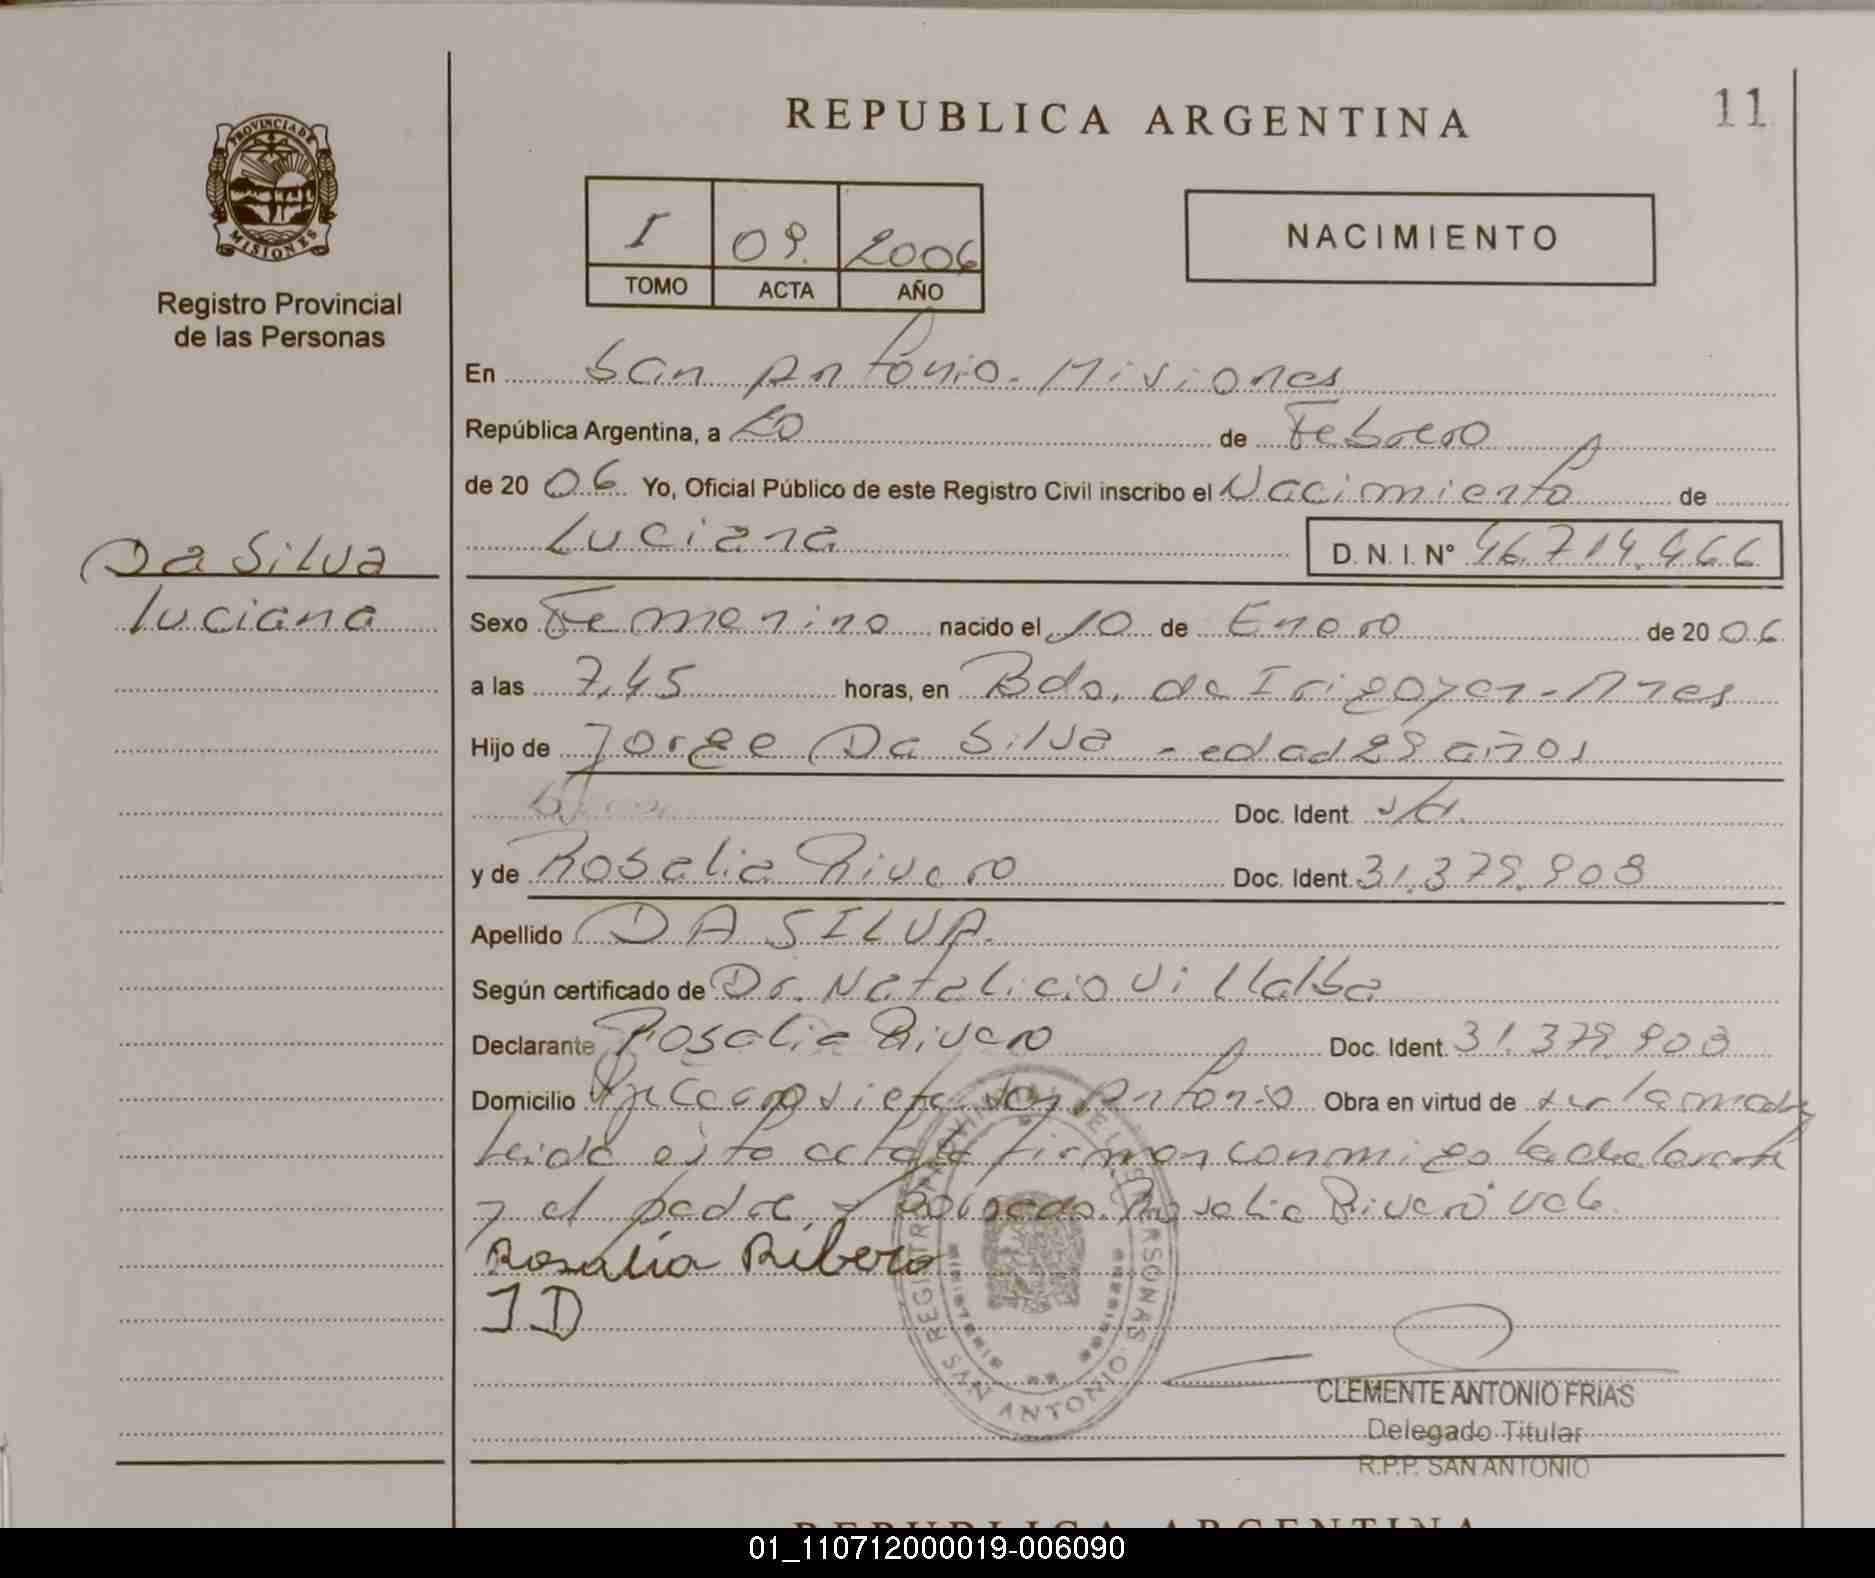 REPUBLICA ARGENTINA
11
PROVINCIA DE
MISIONES
Registro Provincial
de las Personas
I 09. 2006
TOMO ACTA AÑO
NACIMIENTO
En San Antonio - Misiones
República Argentina, a 20 de Febrero
de 20 06 Yo, Oficial Público de este Registro Civil inscribo el Nacimiento de
Luciana D. N. I. Nº 46.714.466
Da Silva
Luciana
Sexo Femenino nacido el 10 de Enero de 20 06
a las 7,45 horas, en Bdo. de Irigoyen - Mnes
Hijo de Jorge Da Silva - edad 29 años
Doc. Ident. s/d.
y de Rosalia Rivero Doc. Ident. 31.379.908
Apellido DA SILVA.
Según certificado de Dr. Natalicio Villalba
Declarante Rosalia Rivero Doc. Ident. 31.379.908
Domicilio San Antonio Obra en virtud de ser la madre
Leida esta acta firman conmigo la declarante
y el padre, Rosalia Rivero vale
Rosalia Ribero
JD
REGISTRO PROVINCIAL DE LAS PERSONAS
SAN ANTONIO
CLEMENTE ANTONIO FRIAS
Delegado Titular
R.P.P. SAN ANTONIO
REPUBLICA ARGENTINA
01_110712000019-006090